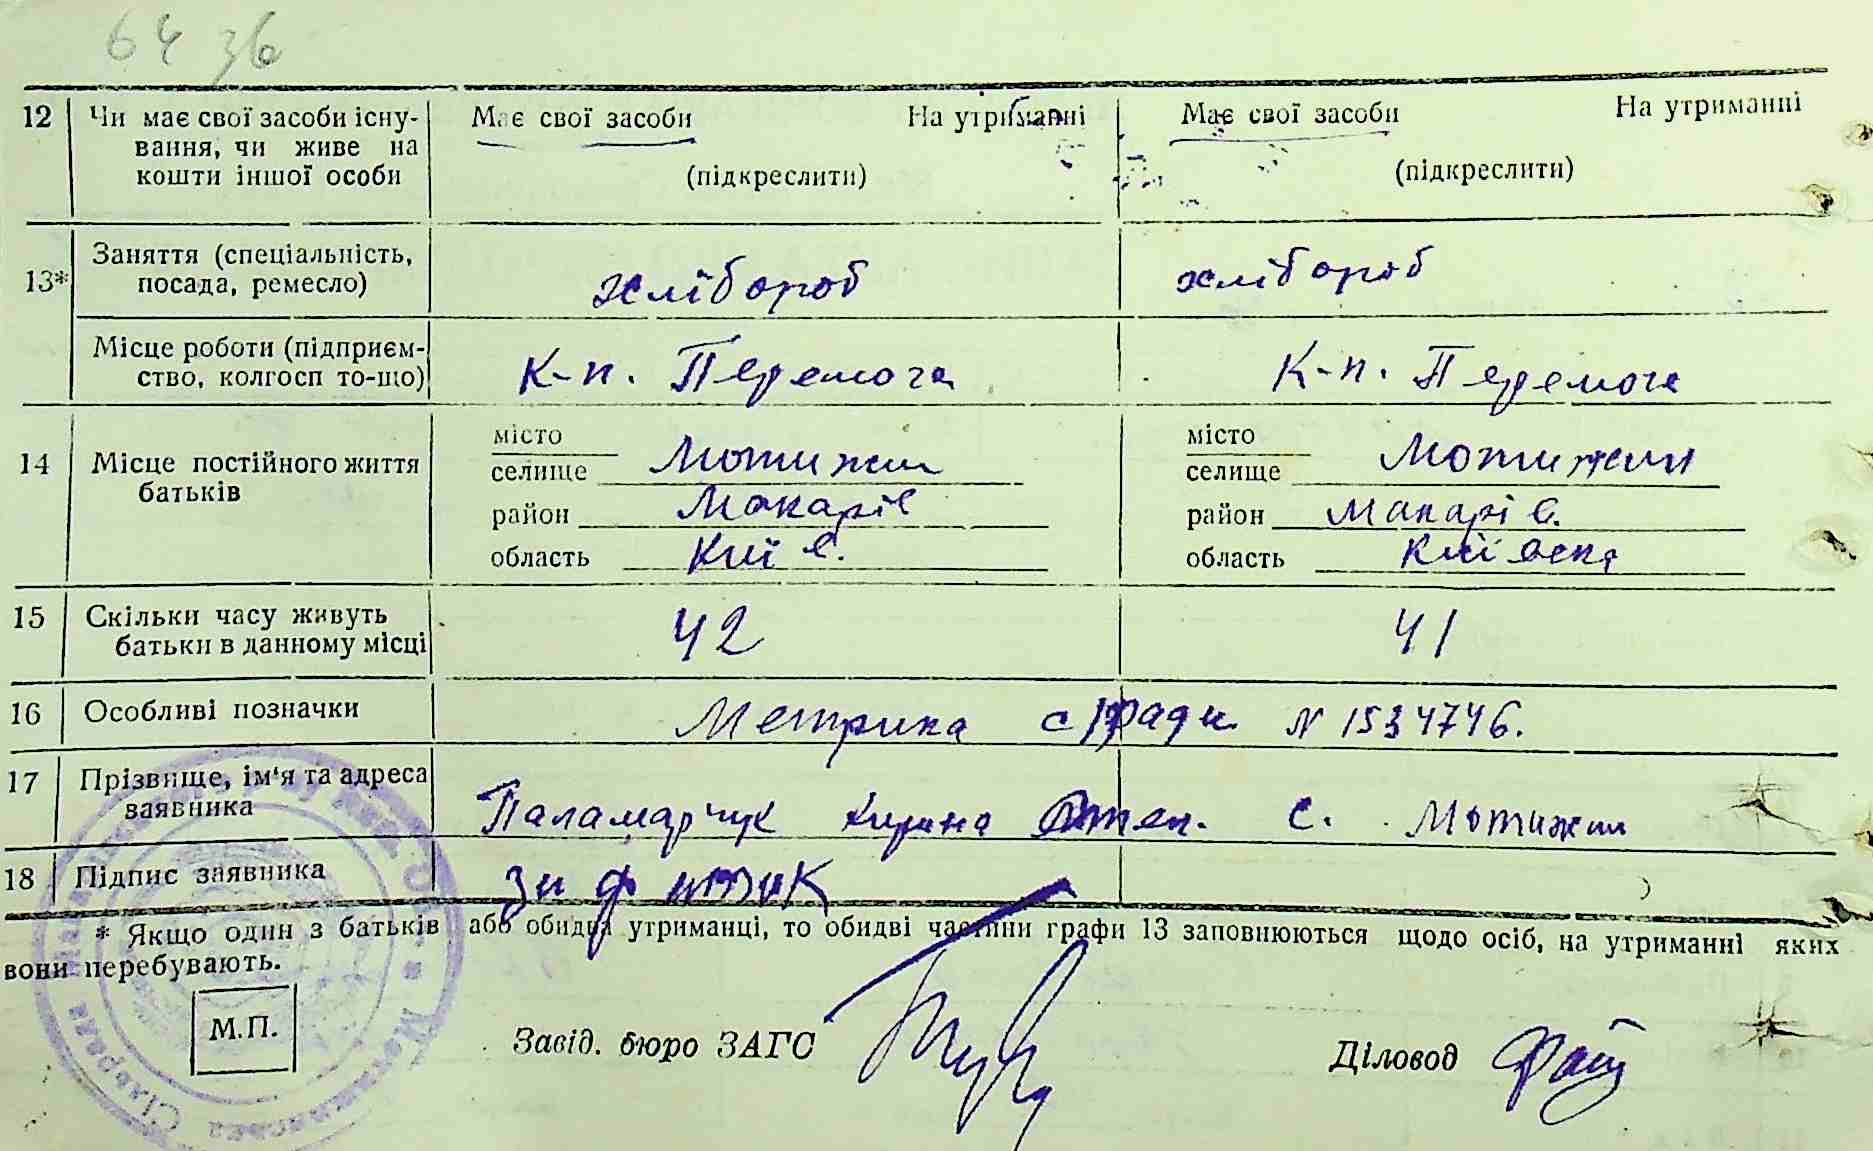 64 36
12 Чи має свої засоби існу- Має свої засоби На утриманні Має свої засоби На утриманні
вання, чи живе на
кошти іншої особи (підкреслити) (підкреслити)
13* Заняття (спеціальність,
посада, ремесло) хлібороб хлібороб
Місце роботи (підприєм-
ство, колгосп то-що) К-п. Перемога К-п. Перемога
14 Місце постійного життя
батьків
місто місто
селище Мотижин селище Мотижин
район Макарів район Макарів.
область Київ. область Київська
15 Скільки часу живуть
батьки в данному місці 42 41
16 Особливі позначки Метрика с/ради N 1534746.
17 Прізвище, ім'я та адреса
заявника Паламарчук с. Мотижин
18 Підпис заявника
* Якщо один з батьків або обидва утриманці, то обидві частини графи 13 заповнюються щодо осіб, на утриманні яких
вони перебувають.
М.П.
Завід. бюро ЗАГС Діловод